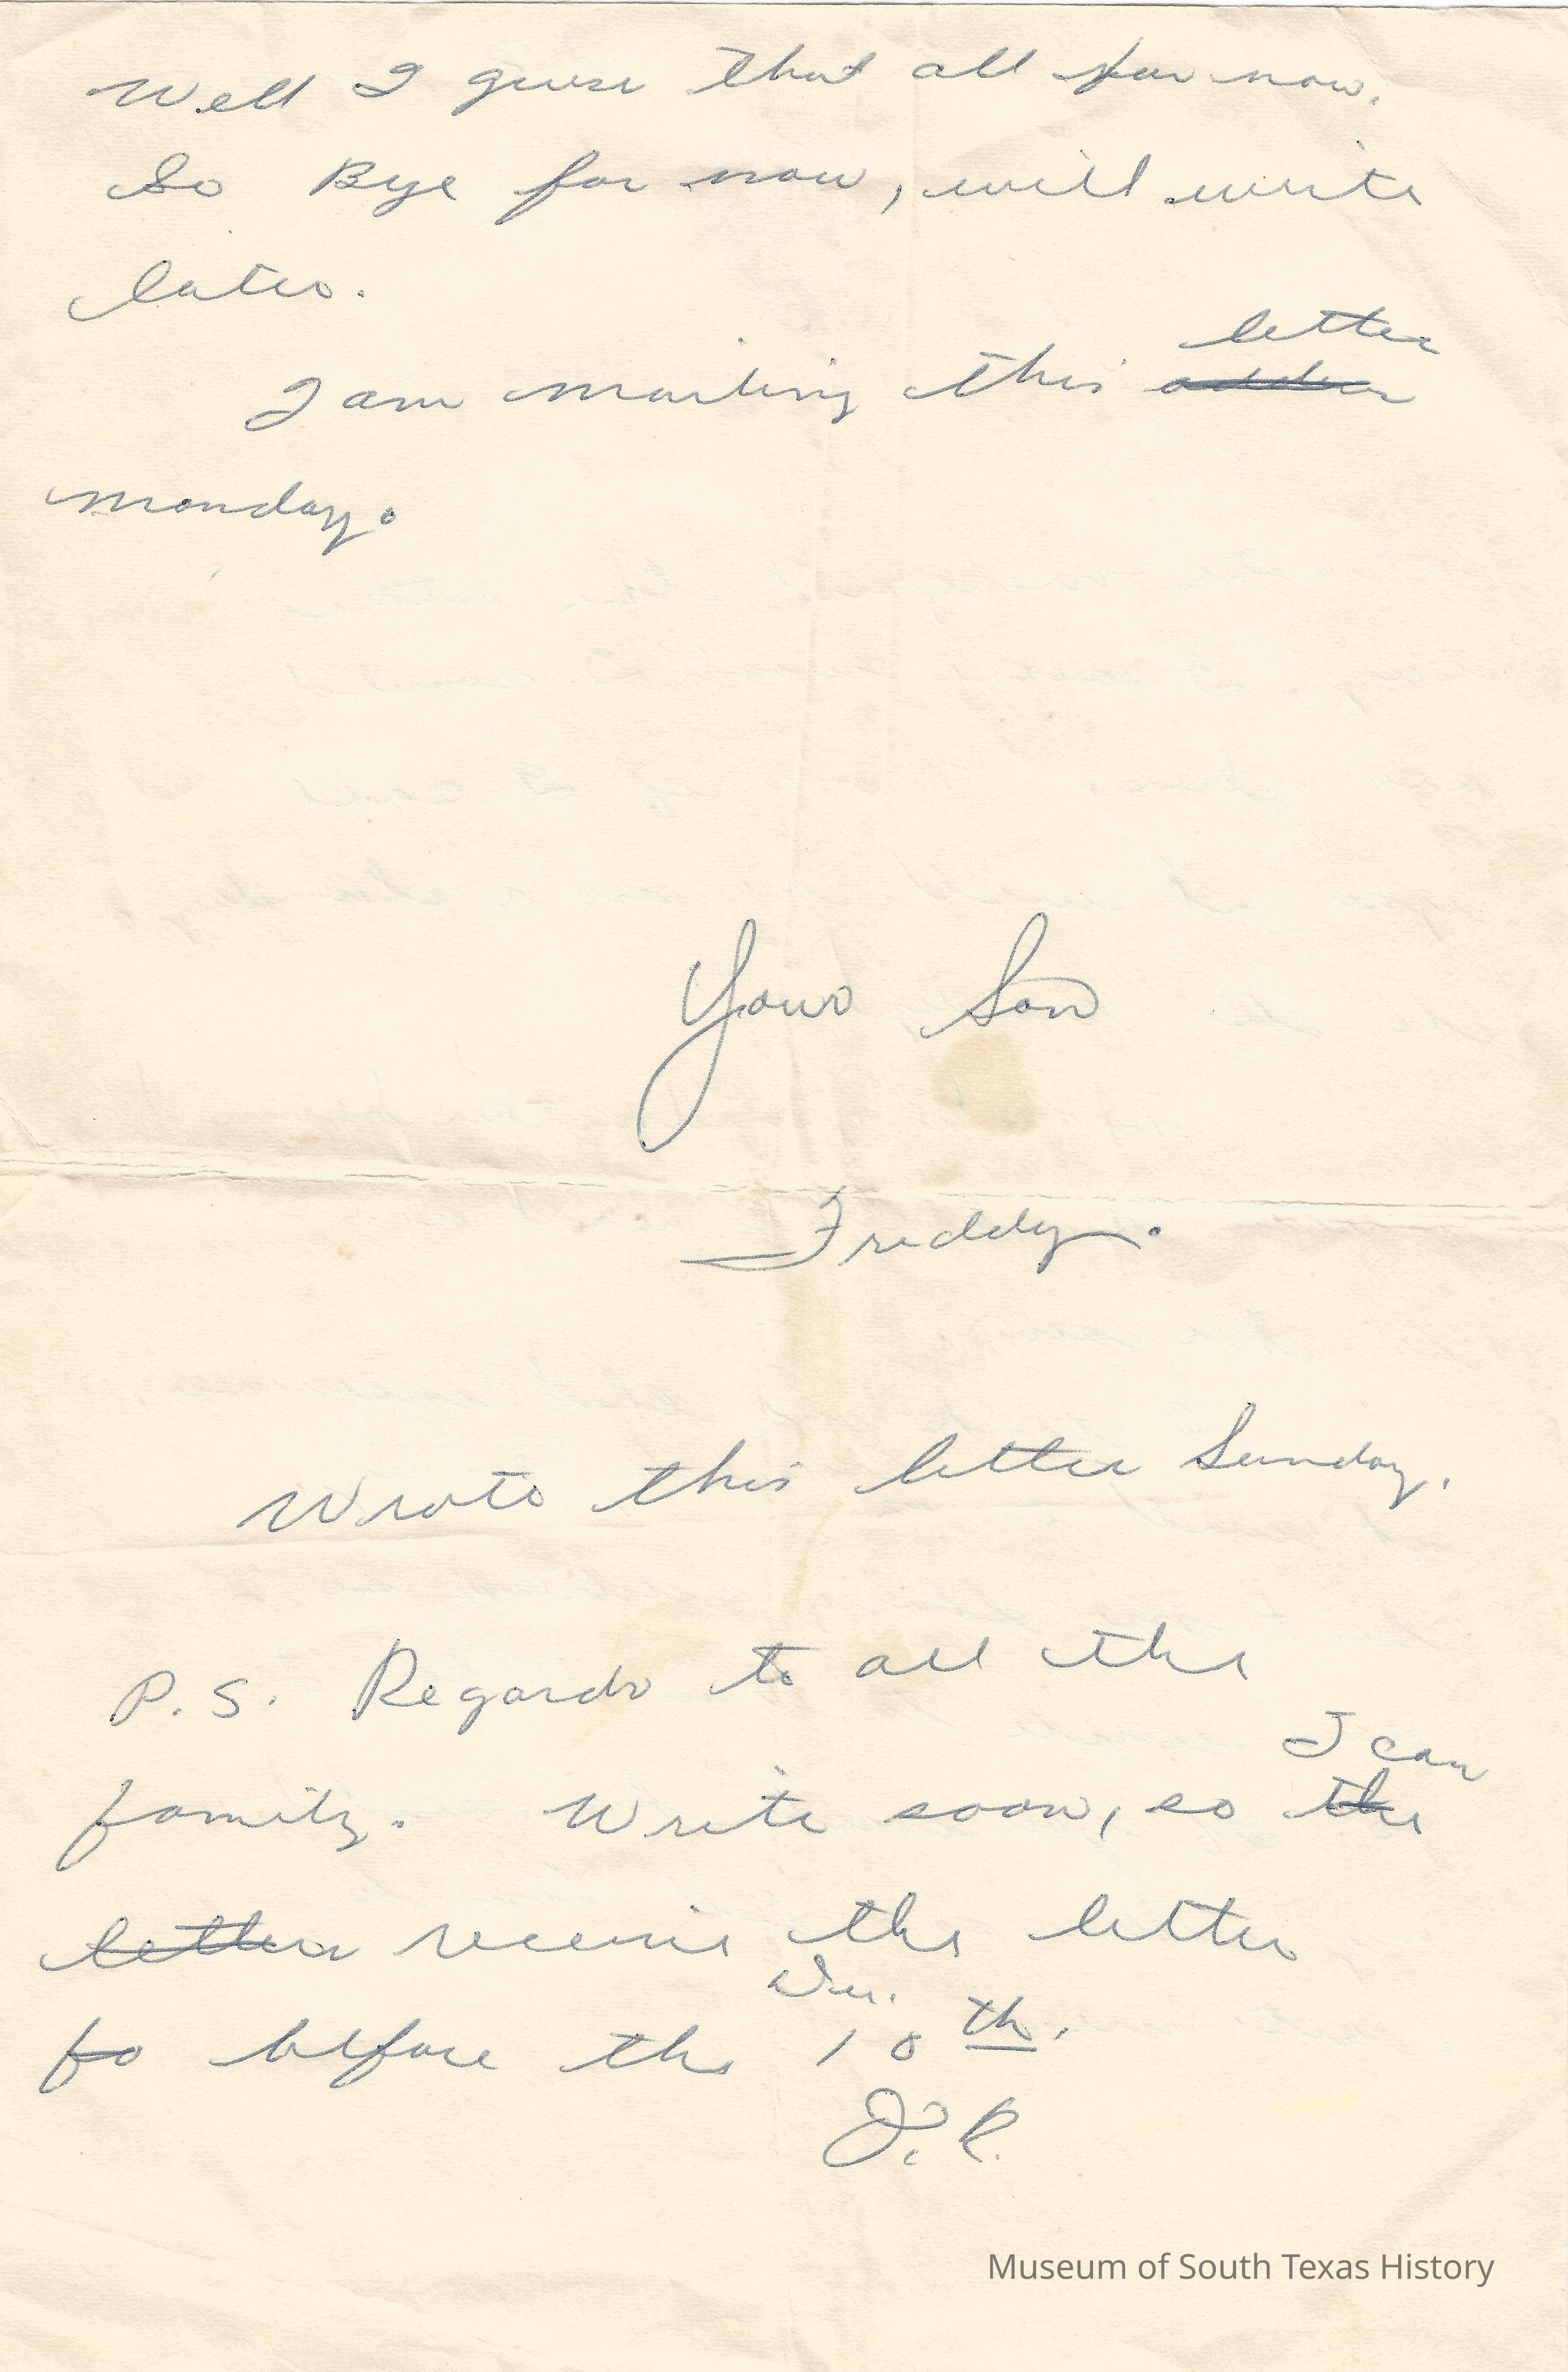 Well I guess that all for now.
So Bye for now, will write
later.
letter
I am mailing this
monday.
Your Son
Freddy.
Wrote this letter Sunday.
P.S. Regards to all the
I can
family. Write soon, so the
letter receive the letter
fo before the 10th.
Dec.
O.K.
Museum of South Texas History